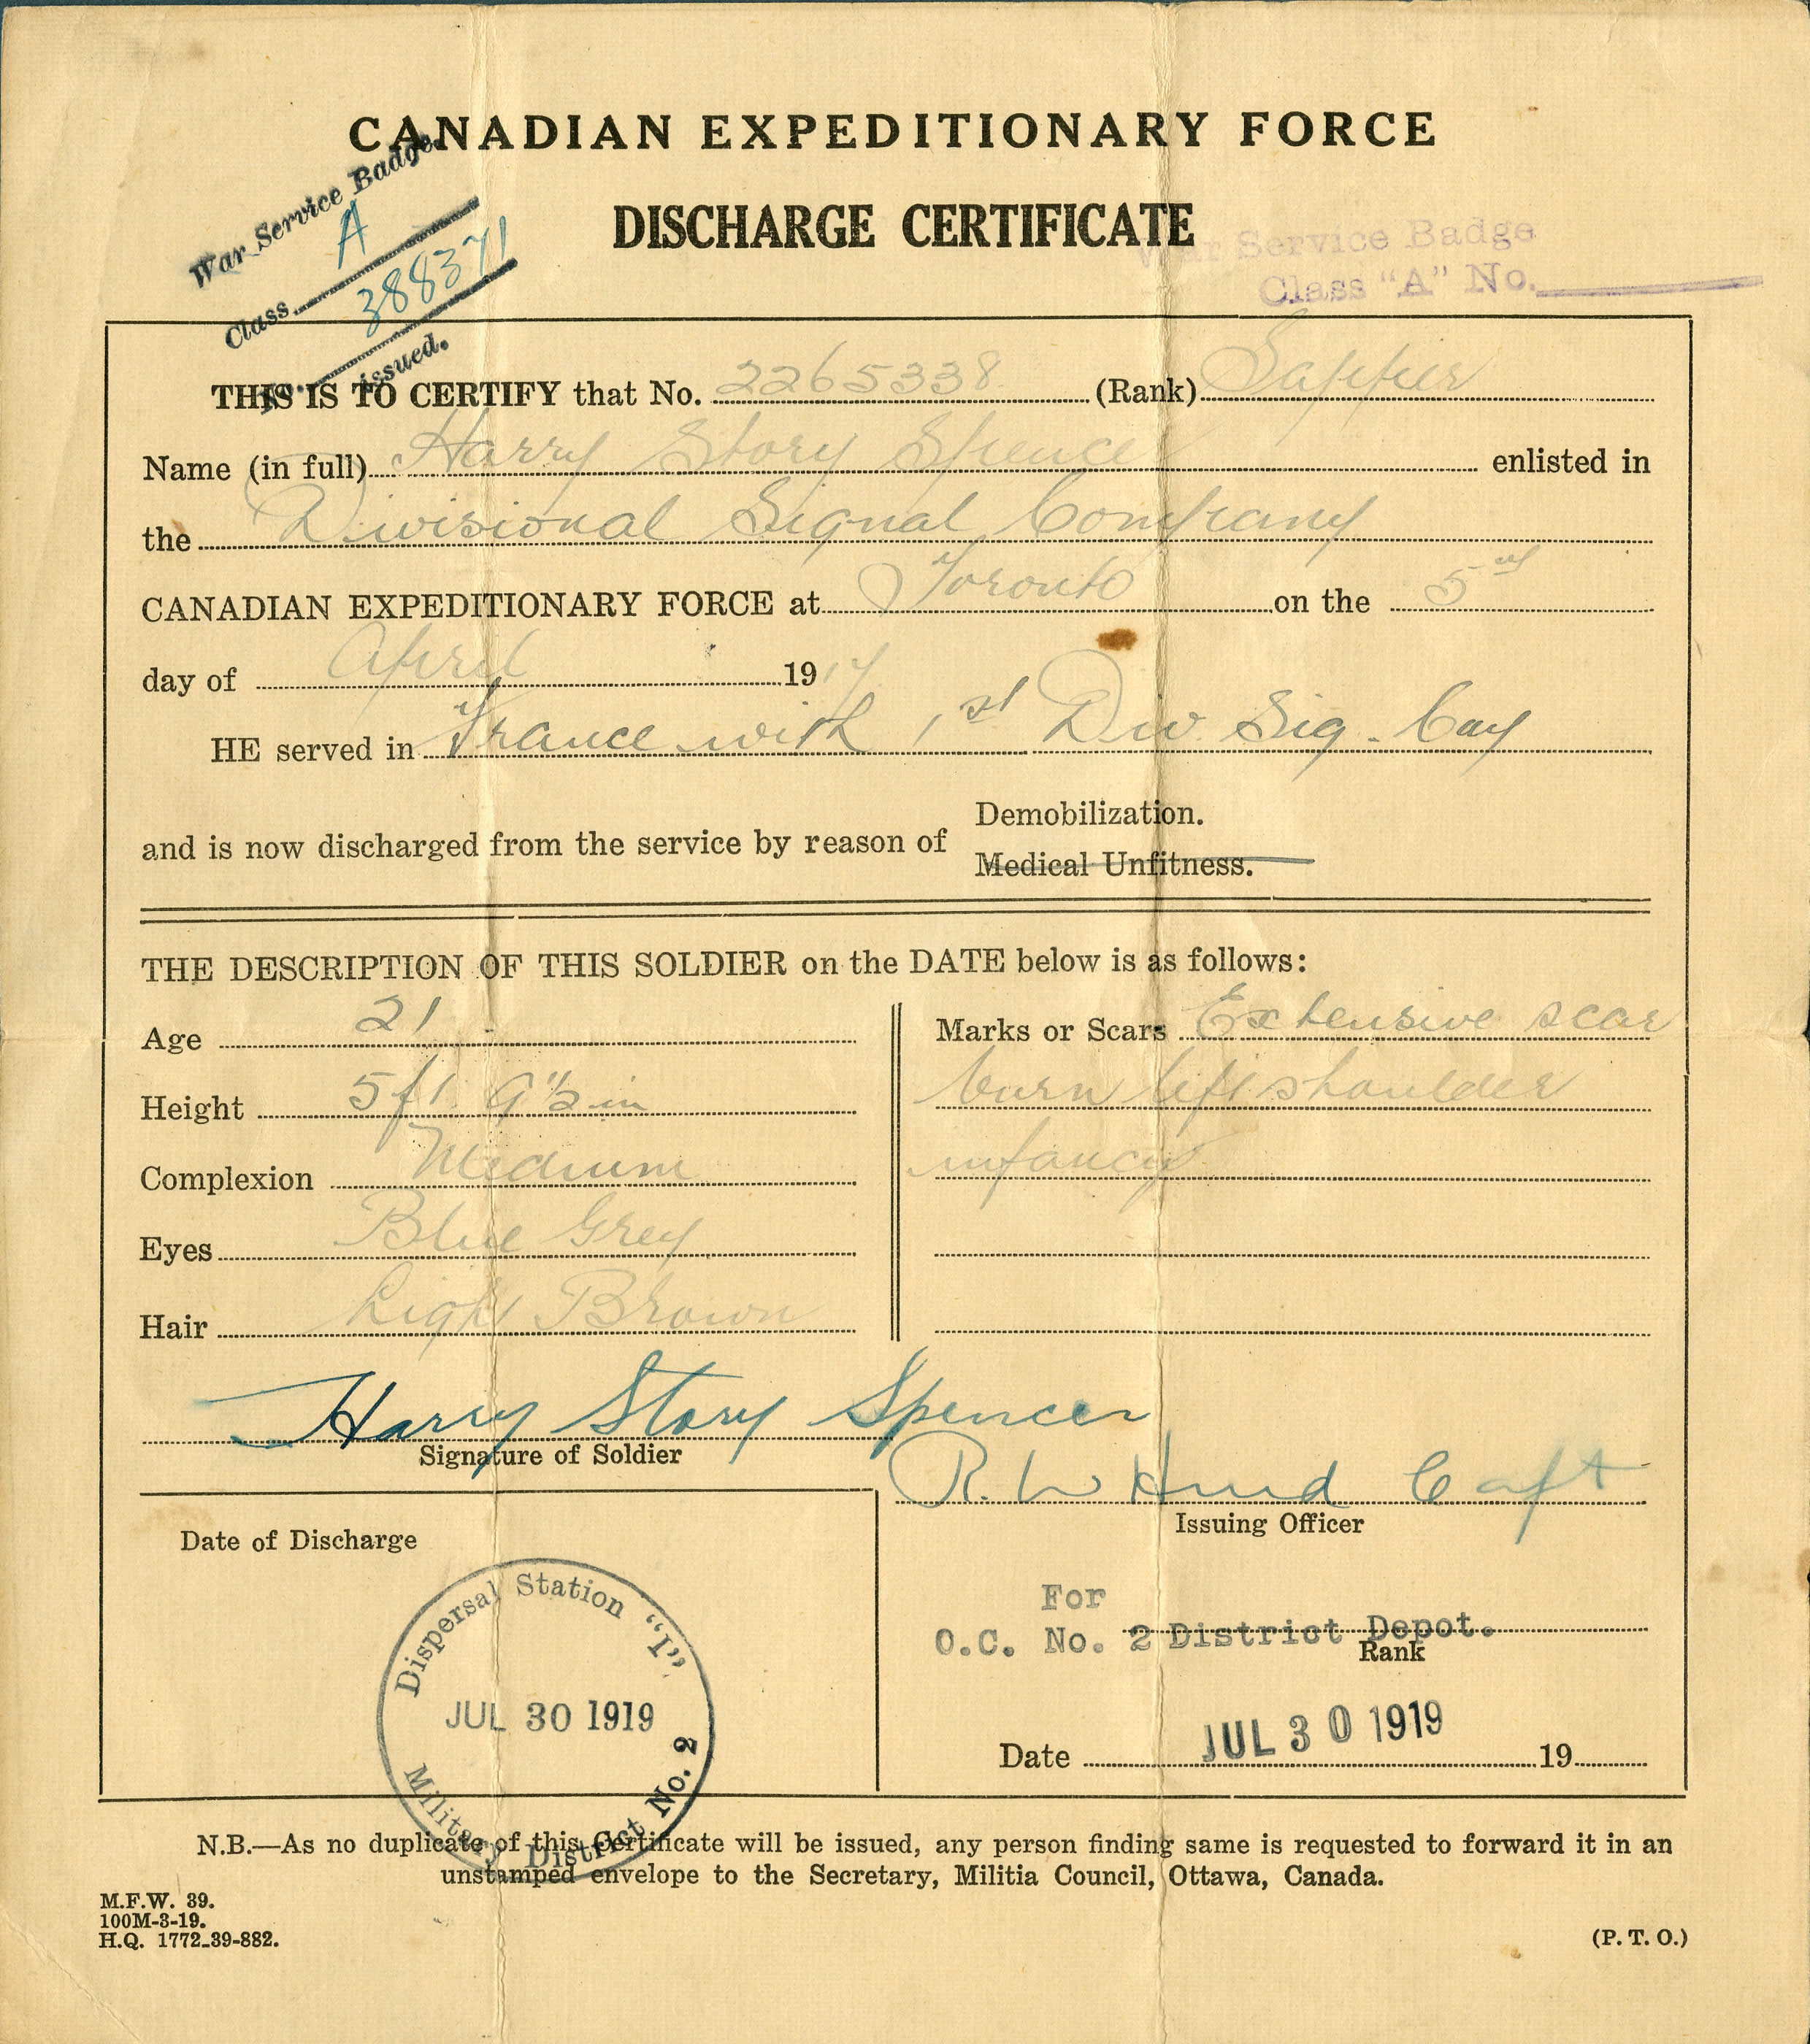 CANADIAN EXPEDITIONARY FORCE
DISCHARGE CERTIFICATE
War Service Badge
Class A
388371
issued.
War Service Badge
Class "A" No.
THIS IS TO CERTIFY that No. 2265338 (Rank) Sapper
Name (in full) Harry Story Spence enlisted in
the Divisional Signal Company
CANADIAN EXPEDITIONARY FORCE at Toronto on the 5th
day of April 1917
HE served in France with 1st Div. Sig. Coy
and is now discharged from the service by reason of Demobilization.
Medical Unfitness.
THE DESCRIPTION OF THIS SOLDIER on the DATE below is as follows:
Age 21
Height 5 ft. 9 1/2 in
Complexion Medium
Eyes Blue Grey
Hair Light Brown
Marks or Scars Extensive scar
burn left shoulder
infancy
Harry Story Spencer
Signature of Soldier
R. W Hurd Capt
Issuing Officer
Date of Discharge
Dispersal Station "I"
JUL 30 1919
Military District No. 2
For
O.C. No. 2 District Depot.
Rank
Date JUL 30 1919 19
N.B.—As no duplicate of this Certificate will be issued, any person finding same is requested to forward it in an
unstamped envelope to the Secretary, Militia Council, Ottawa, Canada.
M.F.W. 39.
100M-3-19.
H.Q. 1772-39-882.
(P. T. O.)